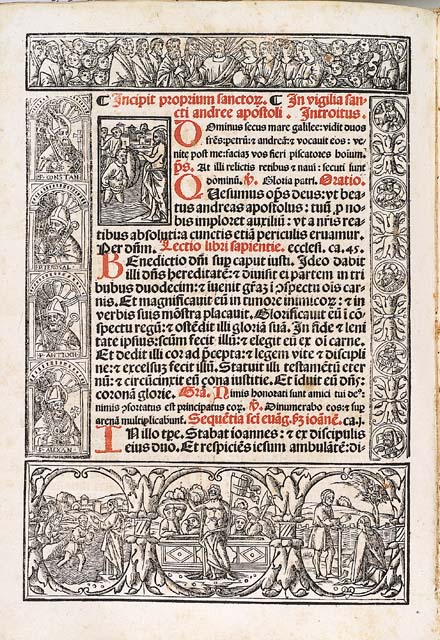 ¶ Incipit proprium sanctoꝝ. ¶ In vigilia san-
cti andree apostoli. Introitus.
Dominus secus mare galilee: vidit duos
fr̃es: petrũ: ⁊ andreã: ⁊ vocauit eos: ve-
nite post me: faciaʒ vos fieri piscatores hoĩum.
p̃s. At illi relictis retibus ⁊ naui: secuti sunt
dominũ. ℣. Gloria patri. Oratio.
Quesumus op̃s deus: vt bea-
tus andreas apostolus: tuũ ꝓ no-
bis imploret auxiliũ: vt a nr̃is rea-
tibus absoluti: a cunctis etiã periculis eruamur.
Per dñm. Lectio libri sapientie. ecclesi. ca. 45.
Benedictio dñi suꝑ caput iusti. Ideo dabit
illi dñs hereditatẽ: ⁊ diuisit ei partem in tri
bubus duodecim: ⁊ iuenit grãʒ ĩ ↄspectu ois car
nis. Et magnificauit eũ in timore inimicoꝝ: ⁊ in
verbis suis mõstra placauit. Glorificauit eũ ĩ cõ
spectu regũ: ⁊ oñdit illi gloriã suã. In fide ⁊ leni
tate ipsius: scũm fecit illũ: ⁊ elegit eũ ex oi carne.
Et dedit illi cor ad p̃cepta: ⁊ legem vite ⁊ discipli
ne: ⁊ excelsuʒ fecit illũ. Statuit illi testamẽtũ eter
nũ: ⁊ circũcinxit eũ zona iustitie. Et iduit eũ dñs:
coronã glorie. Gra. Nimis honorati sunt amici tui deꝰ:
nimis ↄfortatus est principatus eoꝝ. ℣. Dinumerabo eos: ⁊ suꝑ
arenã multiplicabunt. Sequẽtia sci euãg. ẞm ioãnẽ. ca. j.
In illo tp̃e. Stabat ioannes: ⁊ ex discipulis
eius duo. Et respiciẽs iesum ambulãtẽ: di-
S. CONSTAN
S. IEROSAL
S. ANTIOCH
S. ALEXAN